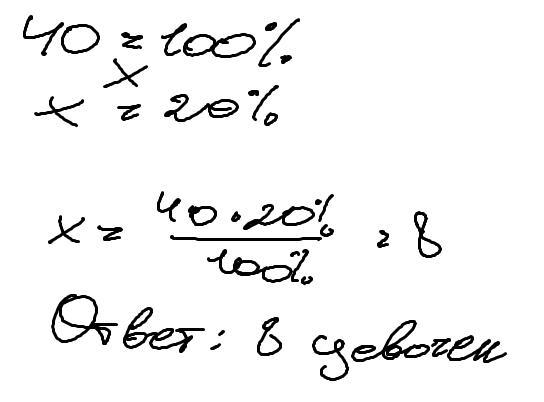 40 = 100%
x
x = 20%
x = 40 · 20% / 100% = 8
Ответ: 8 девочек